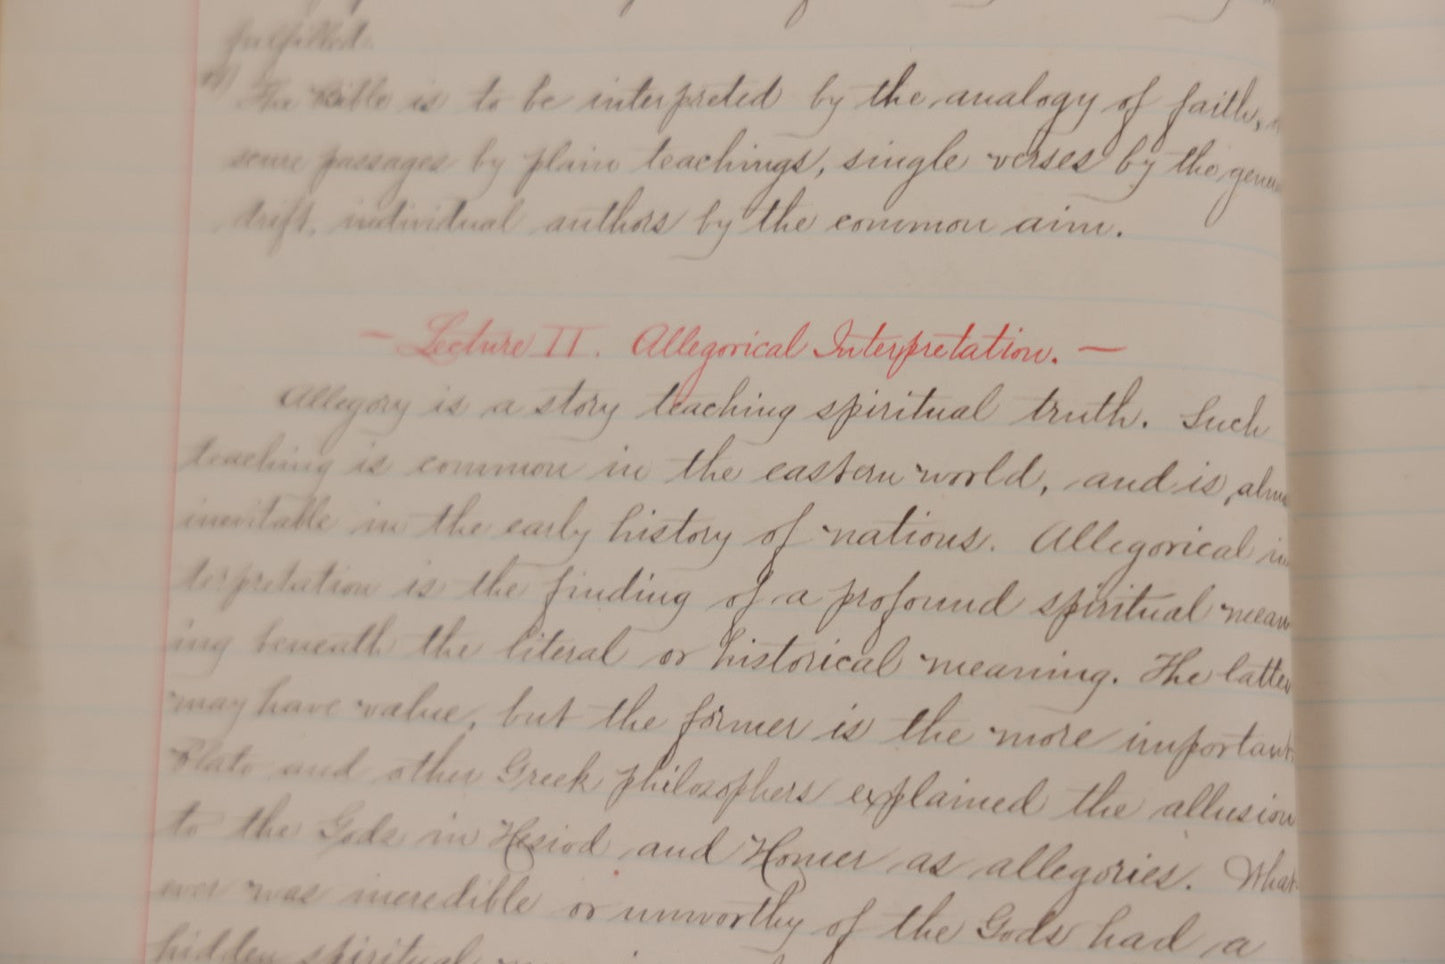 fulfilled.
The Bible is to be interpreted by the analogy of faith,
scure passages by plain teachings, single verses by the gener
drift, individual authors by the common aim.
— Lecture II. Allegorical Interpretation. —
Allegory is a story teaching spiritual truth. Such
teaching is common in the eastern world, and is almo
inevitable in the early history of nations. Allegorical in
terpretation is the finding of a profound spiritual mean
ing beneath the literal or historical meaning. The latter
may have value, but the former is the more important.
Plato and other Greek philosophers explained the allusion
to the Gods in Hesiod and Homer as allegories. What-
ever was incredible or unworthy of the Gods had a
hidden spiritual